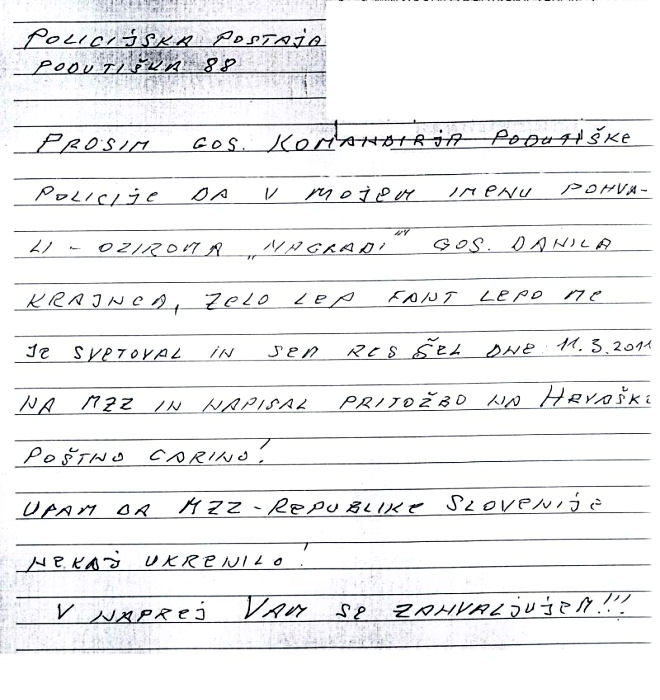 POLICIJSKA POSTAJA
PODUTIŠKA 88
PROSIM GOS. KOMANDIRJA PODUTIŠKE
POLICIJE DA V MOJEM IMENU POHVA-
LI - OZIROMA „NAGRADI" GOS. DANILA
KRAJNCA, ZELO LEP FANT LEPO ME
JE SVETOVAL IN SEM RES ŠEL DNE 11.3.2011
NA MZZ IN NAPISAL PRITOŽBO NA HRVAŠKO
POŠTNO CARINO!
UPAM DA MZZ - REPUBLIKE SLOVENIJE
NEKAJ UKRENILO!
V NAPREJ VAM SE ZAHVALJUJEM!!!